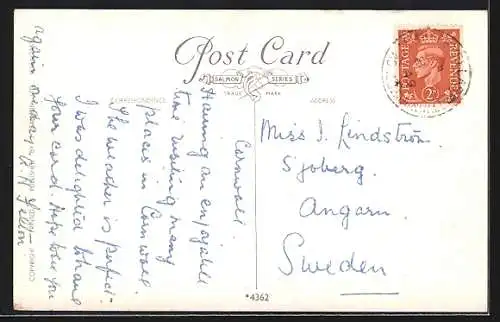 Post Card
SALMON SERIES
TRADE MARK
CORRESPONDENCE
ADDRESS
POSTAGE
REVENUE
2D
Cornwall.
Having an enjoyable
time visiting many
places in Cornwall
The weather is perfect-
I was delighted to have
your card. Hope to see you
again
Miss I. Lindström
Sjöberg.
Angarn.
Sweden
*4362